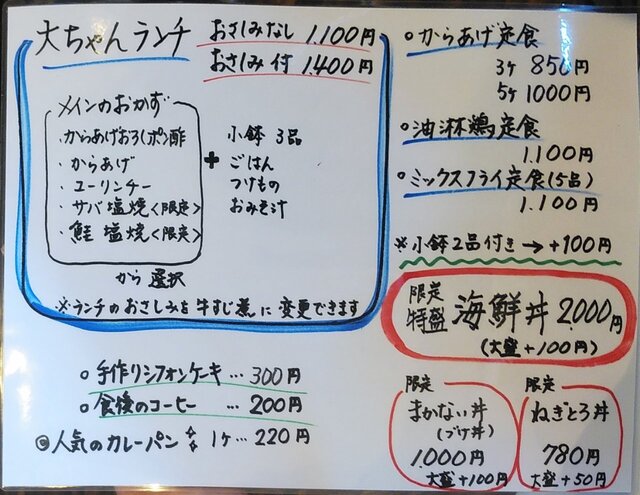 大ちゃんランチ
おさしみなし 1,100円
おさしみ付 1,400円
メインのおかず
・からあげおろしポン酢
・からあげ
・ユーリンチー
・サバ塩焼<限定>
・鮭塩焼<限定>
+
小鉢 3品
ごはん
つけもの
おみそ汁
から選択
※ランチのおさしみを牛すじ煮に変更できます
○からあげ定食
3ケ 850円
5ケ 1000円
○油淋鶏定食
1.100円
○ミックスフライ定食(5品)
1.100円
※小鉢2品付き→+100円
限定
特盛 海鮮丼 2.000円
(大盛+100円)
○手作りシフォンケーキ…300円
○食後のコーヒー …200円
◎人気のカレーパン 1ケ…220円
限定
まかない丼
(づけ丼)
1.000円
大盛+100円
限定
ねぎとろ丼
780円
大盛+50円